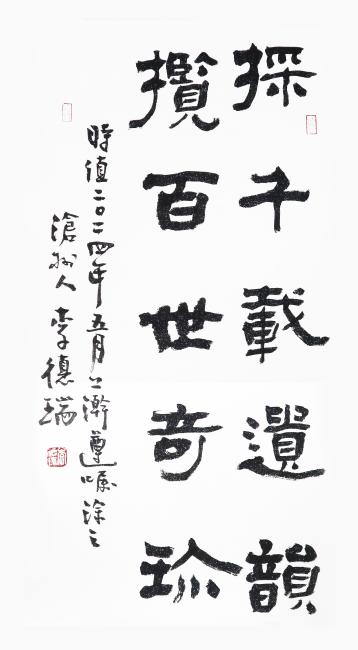 探千載遺韻
攬百世奇珎
時值二〇二四年五月上澣遵嘱涂之
滄州人李德瑞